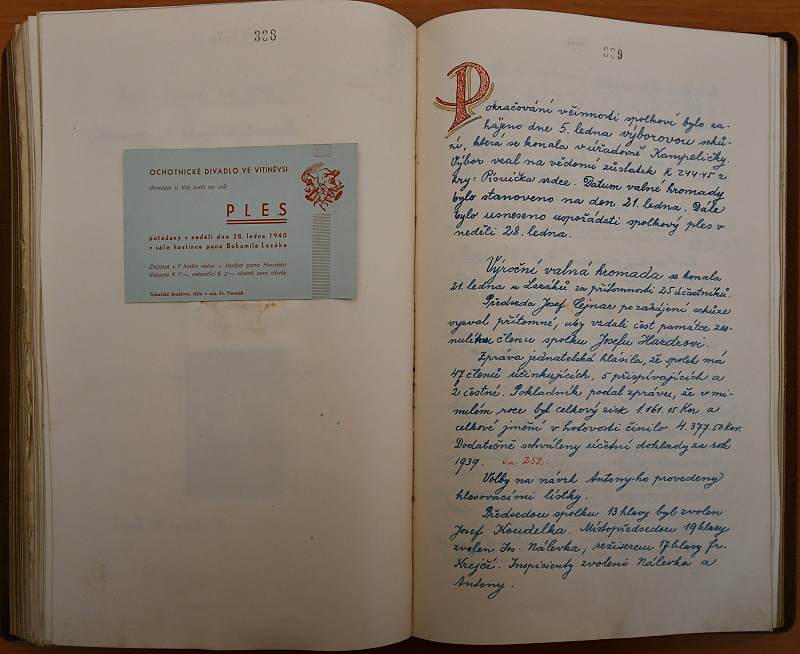 338
OCHOTNICKÉ DIVADLO VE VITINĚVSI
dovoluje si Vás zváti na svůj
PLES
pořádaný v neděli dne 28. ledna 1940
v sále hostince pana Bohumila Lazáka
Začátek v 7 hodin večer • Hudba pana Honzáka
Vstupné K 7—, netančící K 2— včetně zem. dávky
Tiskařské družstvo, Jičín
Fr. Honzák
339
Pokračování v činnosti spolkové bylo za-
hájeno dne 5. ledna výborovou schů-
zí, která se konala v úřadovně Kampeličky.
Výbor vzal na vědomí zůstatek K 244.45 z
hry: Písnička srdce. Datum valné hromady
bylo stanoveno na den 21. ledna. Dále
bylo usneseno uspořádati spolkový ples v
neděli 28. ledna.
Výroční valná hromada se konala
21. ledna u Lazáků za přítomnosti 25 účastníků.
Předseda Josef Cejnar po zahájení schůze
vyzval přítomné, aby vzdali čest památce zes-
nulého členu spolku Josefu Hazdrovi.
Zpráva jednatelská hlásila, že spolek má
47 členů účinkujících, 5 přispívajících a
2 čestné. Pokladník podal zprávu, že v mi-
nulém roce byl celkový zisk 1.161.15 Kor a
celkové jmění v hotovosti činilo 4.377.50 kor.
Dodatečně schváleny účetní doklady za rok
1939. 252.
Volby na návrh Antony-ho provedeny
hlasovacími lístky.
Předsedou spolku 13 hlasy byl zvolen
Josef Koudelka. Místopředsedou 19 hlasy
zvolen Jos. Nálevka, režiserem 17 hlasy Fr.
Krejčí. Inspicienty zvoleni Nálevka a
Antony.